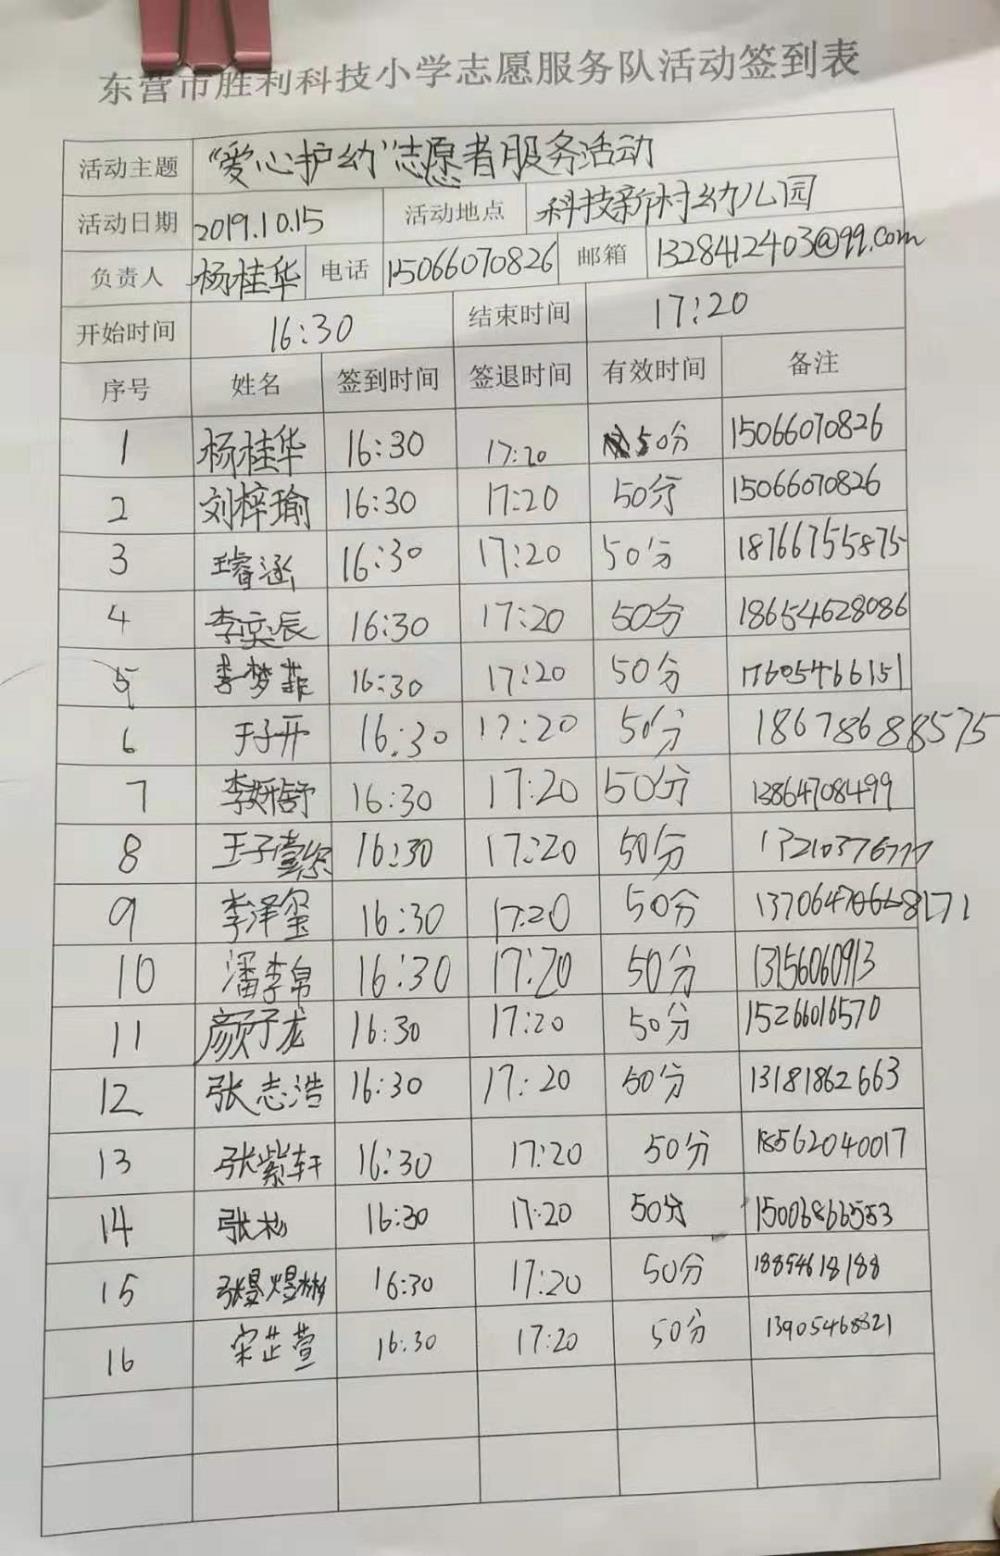 东营市胜利科技小学志愿服务队活动签到表
活动主题 "爱心护幼"志愿者服务活动
活动日期 2019.10.15 活动地点 科技新村幼儿园
负责人 杨桂华 电话 15066070826 邮箱 1328412403@qq.com
开始时间 16:30 结束时间 17:20
序号 姓名 签到时间 签退时间 有效时间 备注
1 杨桂华 16:30 17:20 50分 15066070826
2 刘梓瑜 16:30 17:20 50分 15066070826
3 王睿涵 16:30 17:20 50分 18766755875
4 李奕辰 16:30 17:20 50分 18654628086
5 李梦菲 16:30 17:20 50分 17605466151
6 于子开 16:30 17:20 50分 18678688575
7 李妍舒 16:30 17:20 50分 13864708499
8 王子壹 16:30 17:20 50分
9 李泽玺 16:30 17:20 50分
10 潘李帛 16:30 17:20 50分 13156060913
11 颜子龙 16:30 17:20 50分 15266016570
12 张志浩 16:30 17:20 50分 13181862663
13 张紫轩 16:30 17:20 50分 18562040017
14 张杉 16:30 17:20 50分 15006866553
15 张煜彬 16:30 17:20 50分 18854618188
16 宋芷萱 16:30 17:20 50分 13905468321